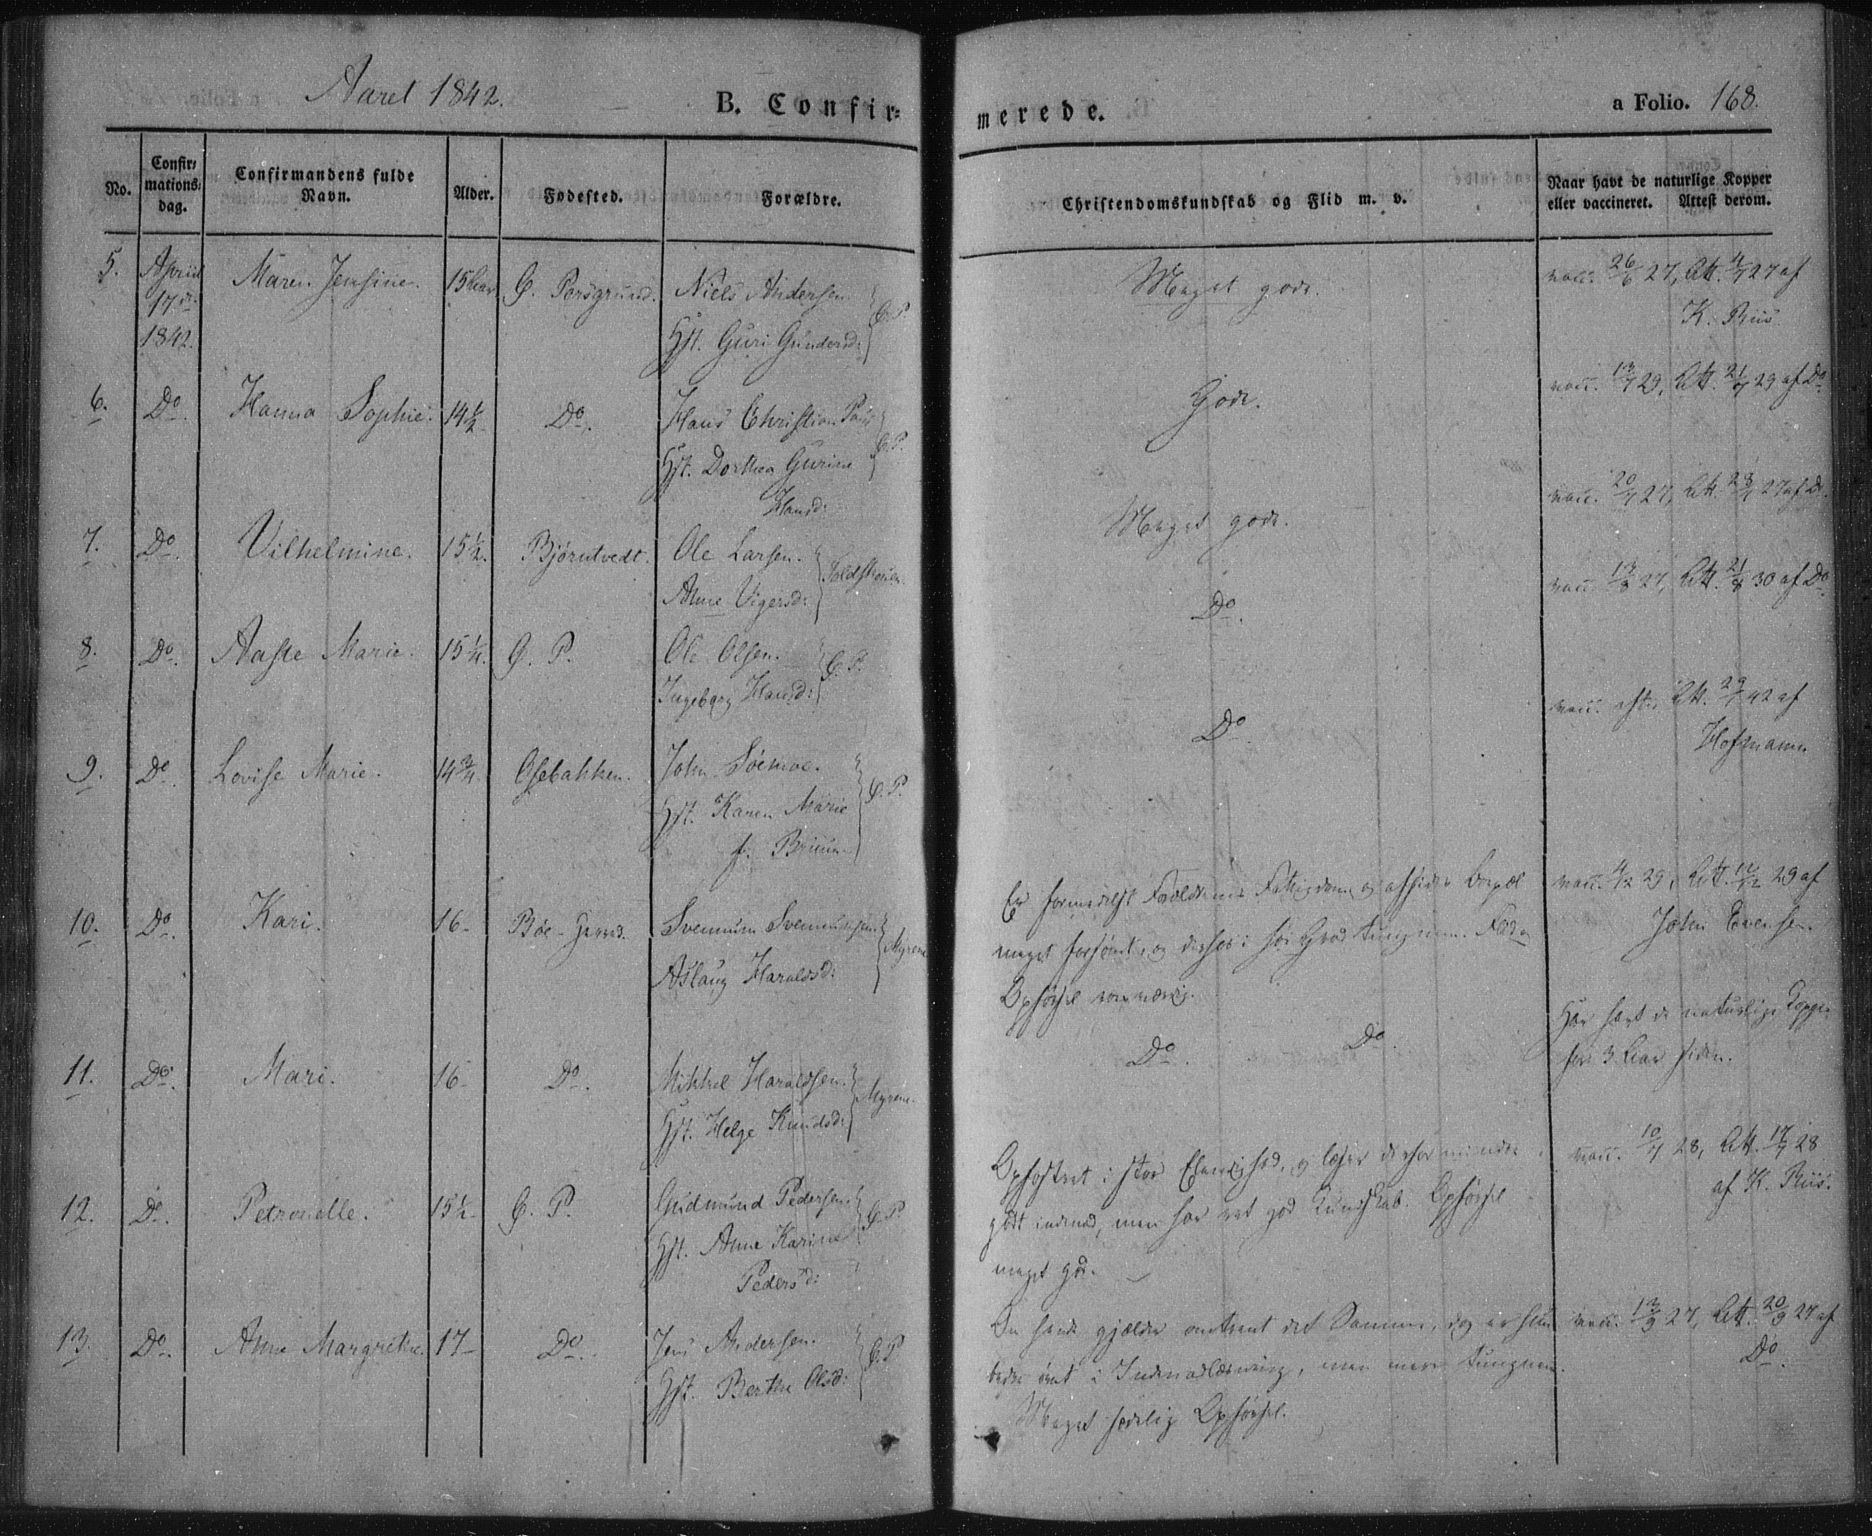 Aaret 1842.
B. Confir=
merede.
a Folio. 168.
No.
Confir=
mations=
dag.
Confirmandens fulde
Navn.
Alder.
Fodested.
Forældre.
Christendomskundskab og Flid m. v.
Naar havt de naturlige Kopper
eller vaccineret. Attest derom.
5. April Maren Jensine. 15 Aar Ø. Porsgrund. Niels Andersen. Ø. P. Meget god. vacc. 26/6 27, Att. 4/7 27 af
17de Hst. Guri Gundersd: K. Riis
1842.
6. Do. Hanna Sophie. 14½ Do. Hans Christian Ø. P. God. vacc. 13/7 29, Att. 21/7 29 af Do.
Hst. Dorthea Gurine
Hansd:
7. Do. Vilhelmine. 15½. Bjørntvedt. Ole Larsen. Meget god. vacc. 20/7 27, Att. 28/7 27 af Do.
Anne Vigersd:
8. Do. Aaste Marie. 15¼. Ø. P. Ole Olsen. Ø. P. Do. vacc. 13/8 27, Att. 21/8 30 af Do.
Ingeborg Hansd:
9. Do Lovise Marie. 14¾. Osebakken. John Ø. P. Do. vacc. Att. 29/ 42 af
Hst. Karen Marie Hofmann
f. Bruun
10. Do. Kari. 16 Bøe - Svennum Svennumsen. Myrene Er formedelst Forældrenes Fattigdom og afsides Bopæl vacc. 4/12 29, Att. 12/12 29 af
Aslaug Haraldsd: meget forsømt, og desuden i høi Grad tungnem. Flid og John Evensen.
Opførsel
11. Do. Mari. 16 Do. Mikkel Haraldsen. Myrene. Do. Do. Har havt de naturlige Kopper
Hst. Helge Knudsd: for 3 Aar siden.
12. Do. Petronelle. 15½ Ø. P. Gudmund Pedersen. Ø. P. Opfostret i stor og læser derfor mindre vacc. 10/7 28, Att. 17/7 28
Hst. Anne Karine godt indenad, men har ret god Kundskab. Opførsel af K. Riis.
Pedersd: meget god.
13. Do. Anne Margrethe. 17 Do. Jens Andersen. Ø. P. Om hende gjælder omtrent det Samme, dog er hun vacc. 13/9 27, Att. 20/9 27 af
Hst. Berthe Olsd: bedre øvet i Indenadlæsning, men mere tungnem. Do.
Meget sædelig Opførsel.